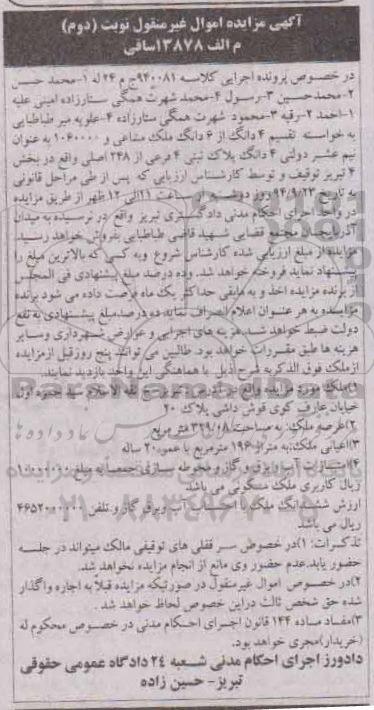 آگهی مزایده اموال غیرمنقول نوبت (دوم)
م الف ۱۳۸۷۸ساقی
در خصوص پرونده اجرایی کلاسه ۹۴۰۰۸۱ج م ۲۴ له ۱-محمد حسن
۲-محمدحسین ۳-رسول ۴-محمد شهرت همگی ستارزاده امینی علیه
۱-احمد ۲-رقیه ۳-محمود شهرت همگی ستارزاده ۴-علویه میر طباطبایی
به خواسته تقسیم ۴ دانگ از ۶ دانگ ملک مشاعی و ۱۰۶۰۰۰۰ به عنوان
نیم عشر دولتی ۴ دانگ پلاک ثبتی ۴ فرعی از ۲۴۸ اصلی واقع در بخش
۴ تبریز توقیف و توسط کارشناس ارزیابی که پس از طی مراحل قانونی
به تاریخ ۹۴/۹/۲۳ روز دوشنبه ساعت ۱۱الی ۱۲ ظهر از طریق مزایده
در واحد اجرای احکام مدنی دادگستری تبریز واقع در نرسیده به میدان
آذربایجان مجتمع قضایی شهید قاضی طباطبایی بفروش خواهد رسید.
مزایده از مبلغ ارزیابی شده کارشناس شروع وبه کسی که بالاترین مبلغ را
پیشنهاد نماید فروخته خواهد شد. وده درصد مبلغ پیشنهادی فی المجلس
از برنده مزایده اخذ و به مابقی حداکثر یک ماه فرصت داده می شود برنده
مزایده به هر عنوان اعلام انصراف نماید ده درصدمبلغ پیشنهادی به نفع
دولت ضبط خواهد شد.هزینه های اجرایی و عوارض شهرداری وسایر
هزینه ها طبق مقررات خواهد بود. طالبین می توانند پنج روزقبل ازمزایده
ازملک فوق الذکربه شرح ذیل با هماهنگی این واحد بازدید نمایند.
۱)ملک مورد مزایده واقع در آدرس: تبریز
خیابان عارف کوی قوش داشی پلاک ۲۰
۲)عرصه ملک: به مساحت ۳۲۹/۰۸ متر مربع
۳)اعیانی ملک:به متراژ ۱۹۶ مترمربع با عمر ۲۰ ساله
۴)امتیازات آب و برق و گاز و محوطه سازی جمعا به مبلغ
ریال کاربری ملک مسکونی می باشد
ارزش ششدانگ ملک با احتساب آب وبرق گاز و تلفن
ریال می باشد
تذکرات: ۱)در خصوص سر قفلی های توقیفی مالک میتواند در جلسه
حضور یابد.عدم حضور وی مانع از انجام مزایده نخواهد شد.
۲)در خصوص اموال غیرمنقول در صورتیکه مزایده قبلا به اجاره واگذار
شده حق شخص ثالث دراین خصوص لحاظ خواهد شد .
۳)مفاد ماده ۱۴۴ قانون اجرای احکام مدنی در خصوص محکوم له
(خریدار)مجری خواهد بود.
دادورز اجرای احکام مدنی شعبه ۲۴ دادگاه عمومی حقوقی
تبریز- حسین زاده
ParsNamadData
۰۲۱-۸۸۳۴۹۶۷۰-۵